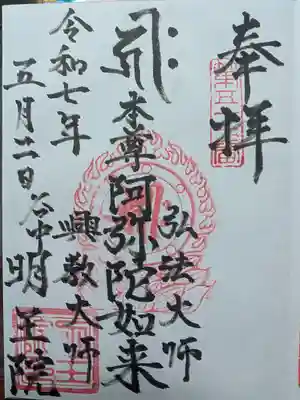 奉拝
弘法大師
本尊阿弥陀如来
興教大師
令和七年
五月二日
谷中明王院